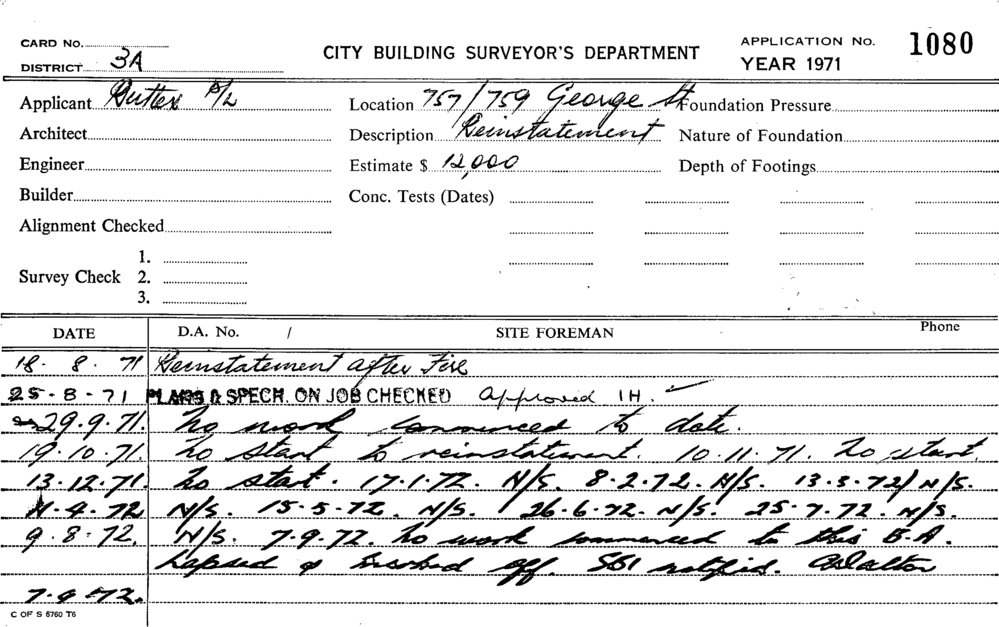 CARD No.
DISTRICT 3A
CITY BUILDING SURVEYOR'S DEPARTMENT
APPLICATION No. 1080
YEAR 1971
Applicant P/L
Location 757/759 George St
Foundation Pressure
Architect
Description Reinstatement
Nature of Foundation
Engineer
Estimate $ 12,000
Depth of Footings
Builder
Conc. Tests (Dates)
Alignment Checked
Survey Check 1.
2.
3.
DATE D.A. No. / SITE FOREMAN Phone
18. 8. 71 Reinstatement after Fire
25-8-71 PLANS & SPECN. ON JOB CHECKED Approved IH. ✓
29.9.71. No work commenced to date.
19.10.71. No start to reinstatement. 10.11.71. No start.
13.12.71. No start. 17.1.72. N/S. 8.2.72. N/S. 13.3.72/ N/S.
4.72 N/S. 15.5.72. N/S. 26.6.72. N/S. 25.7.72. N/S.
9.8.72. N/S. 7.9.72. No work commenced to this B.A.
Lapsed & off. SBI notified.
7.9.72.
C OF S 6760 T6